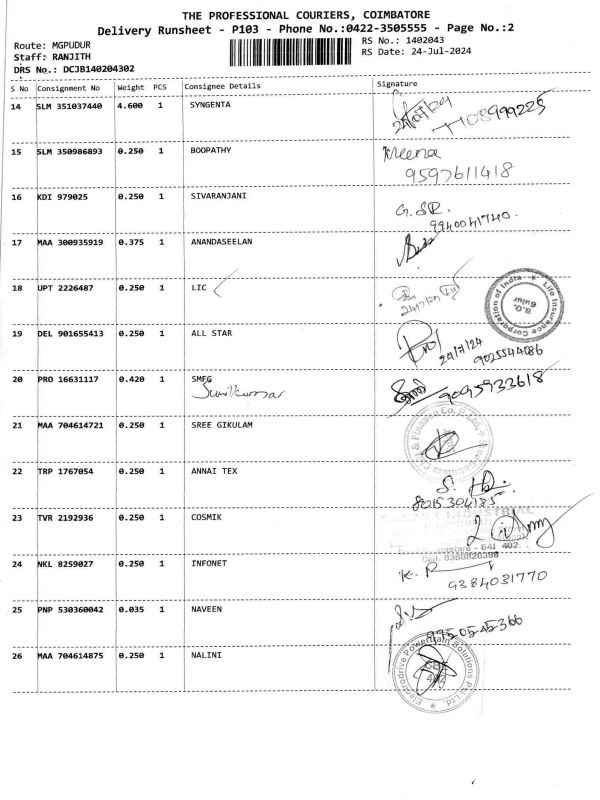 THE PROFESSIONAL COURIERS, COIMBATORE
Delivery Runsheet - P103 - Phone No.:0422-3505555 - Page No.:2
Route: MGPUDUR
Staff: RANJITH
DRS No.: DCJB140204302
RS No.: 1402043
RS Date: 24-Jul-2024
S No Consignment No Weight PCS Consignee Details Signature
14 SLM 351037440 4.600 1 SYNGENTA
15 SLM 350986893 0.250 1 BOOPATHY Meena
9597611418
16 KDI 979025 0.250 1 SIVARANJANI G. SR.
9940041740.
17 MAA 300935919 0.375 1 ANANDASEELAN
18 UPT 2226487 0.250 1 LIC
24/7/24
Life Insurance Corporation of India
B.O.
19 DEL 901655413 0.250 1 ALL STAR
24/7/24
9025544086
20 PRO 16631117 0.420 1 SMFG 9095933618
Sunilkumar
21 MAA 704614721 0.250 1 SREE GIKULAM
22 TRP 1767054 0.250 1 ANNAI TEX S.
8015304185
23 TVR 2192936 0.250 1 COSMIK
INDUSTRIAL
641 402.
Cell: 6380820398
24 NKL 8259027 0.250 1 INFONET K. P
9384031770
25 PNP 530360042 0.035 1 NAVEEN
26 MAA 704614875 0.250 1 NALINI
Electrodrive Powertrain Solutions Pvt Ltd.
CBE
402